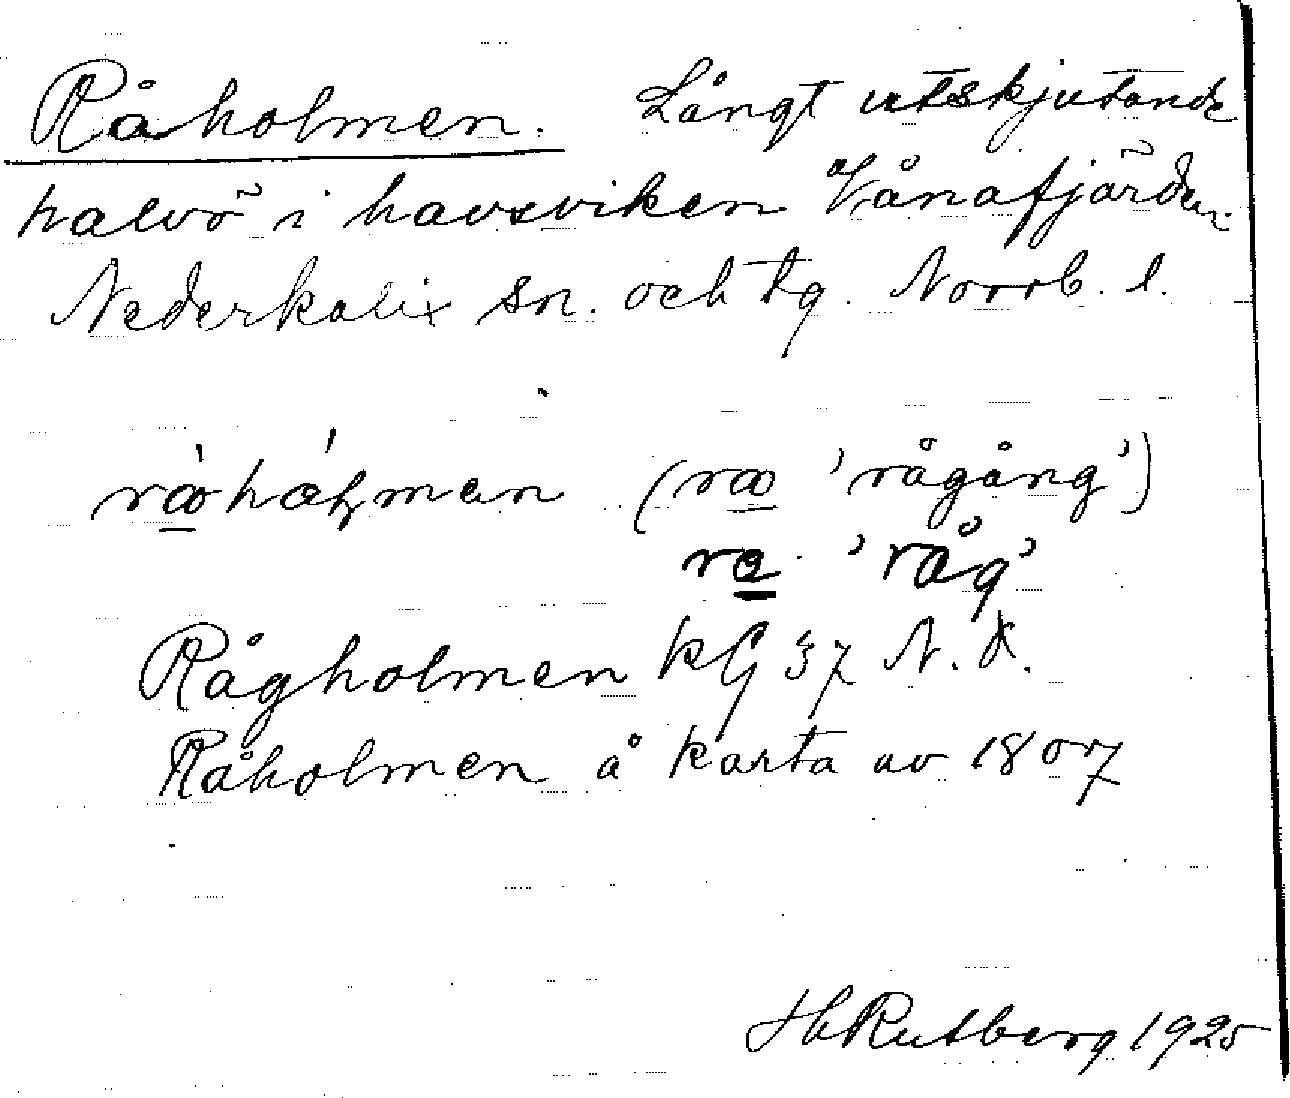 Råholmen. Långt utskjutande
halvö i havsviken Vånafjärden.
Nederkalix sn. och tg. Norrb. l.
(ra̲ 'rågång')
'råg'
Rågholmen KG 37 N. K.
Råholmen å karta av 1807
H Rutberg 1925